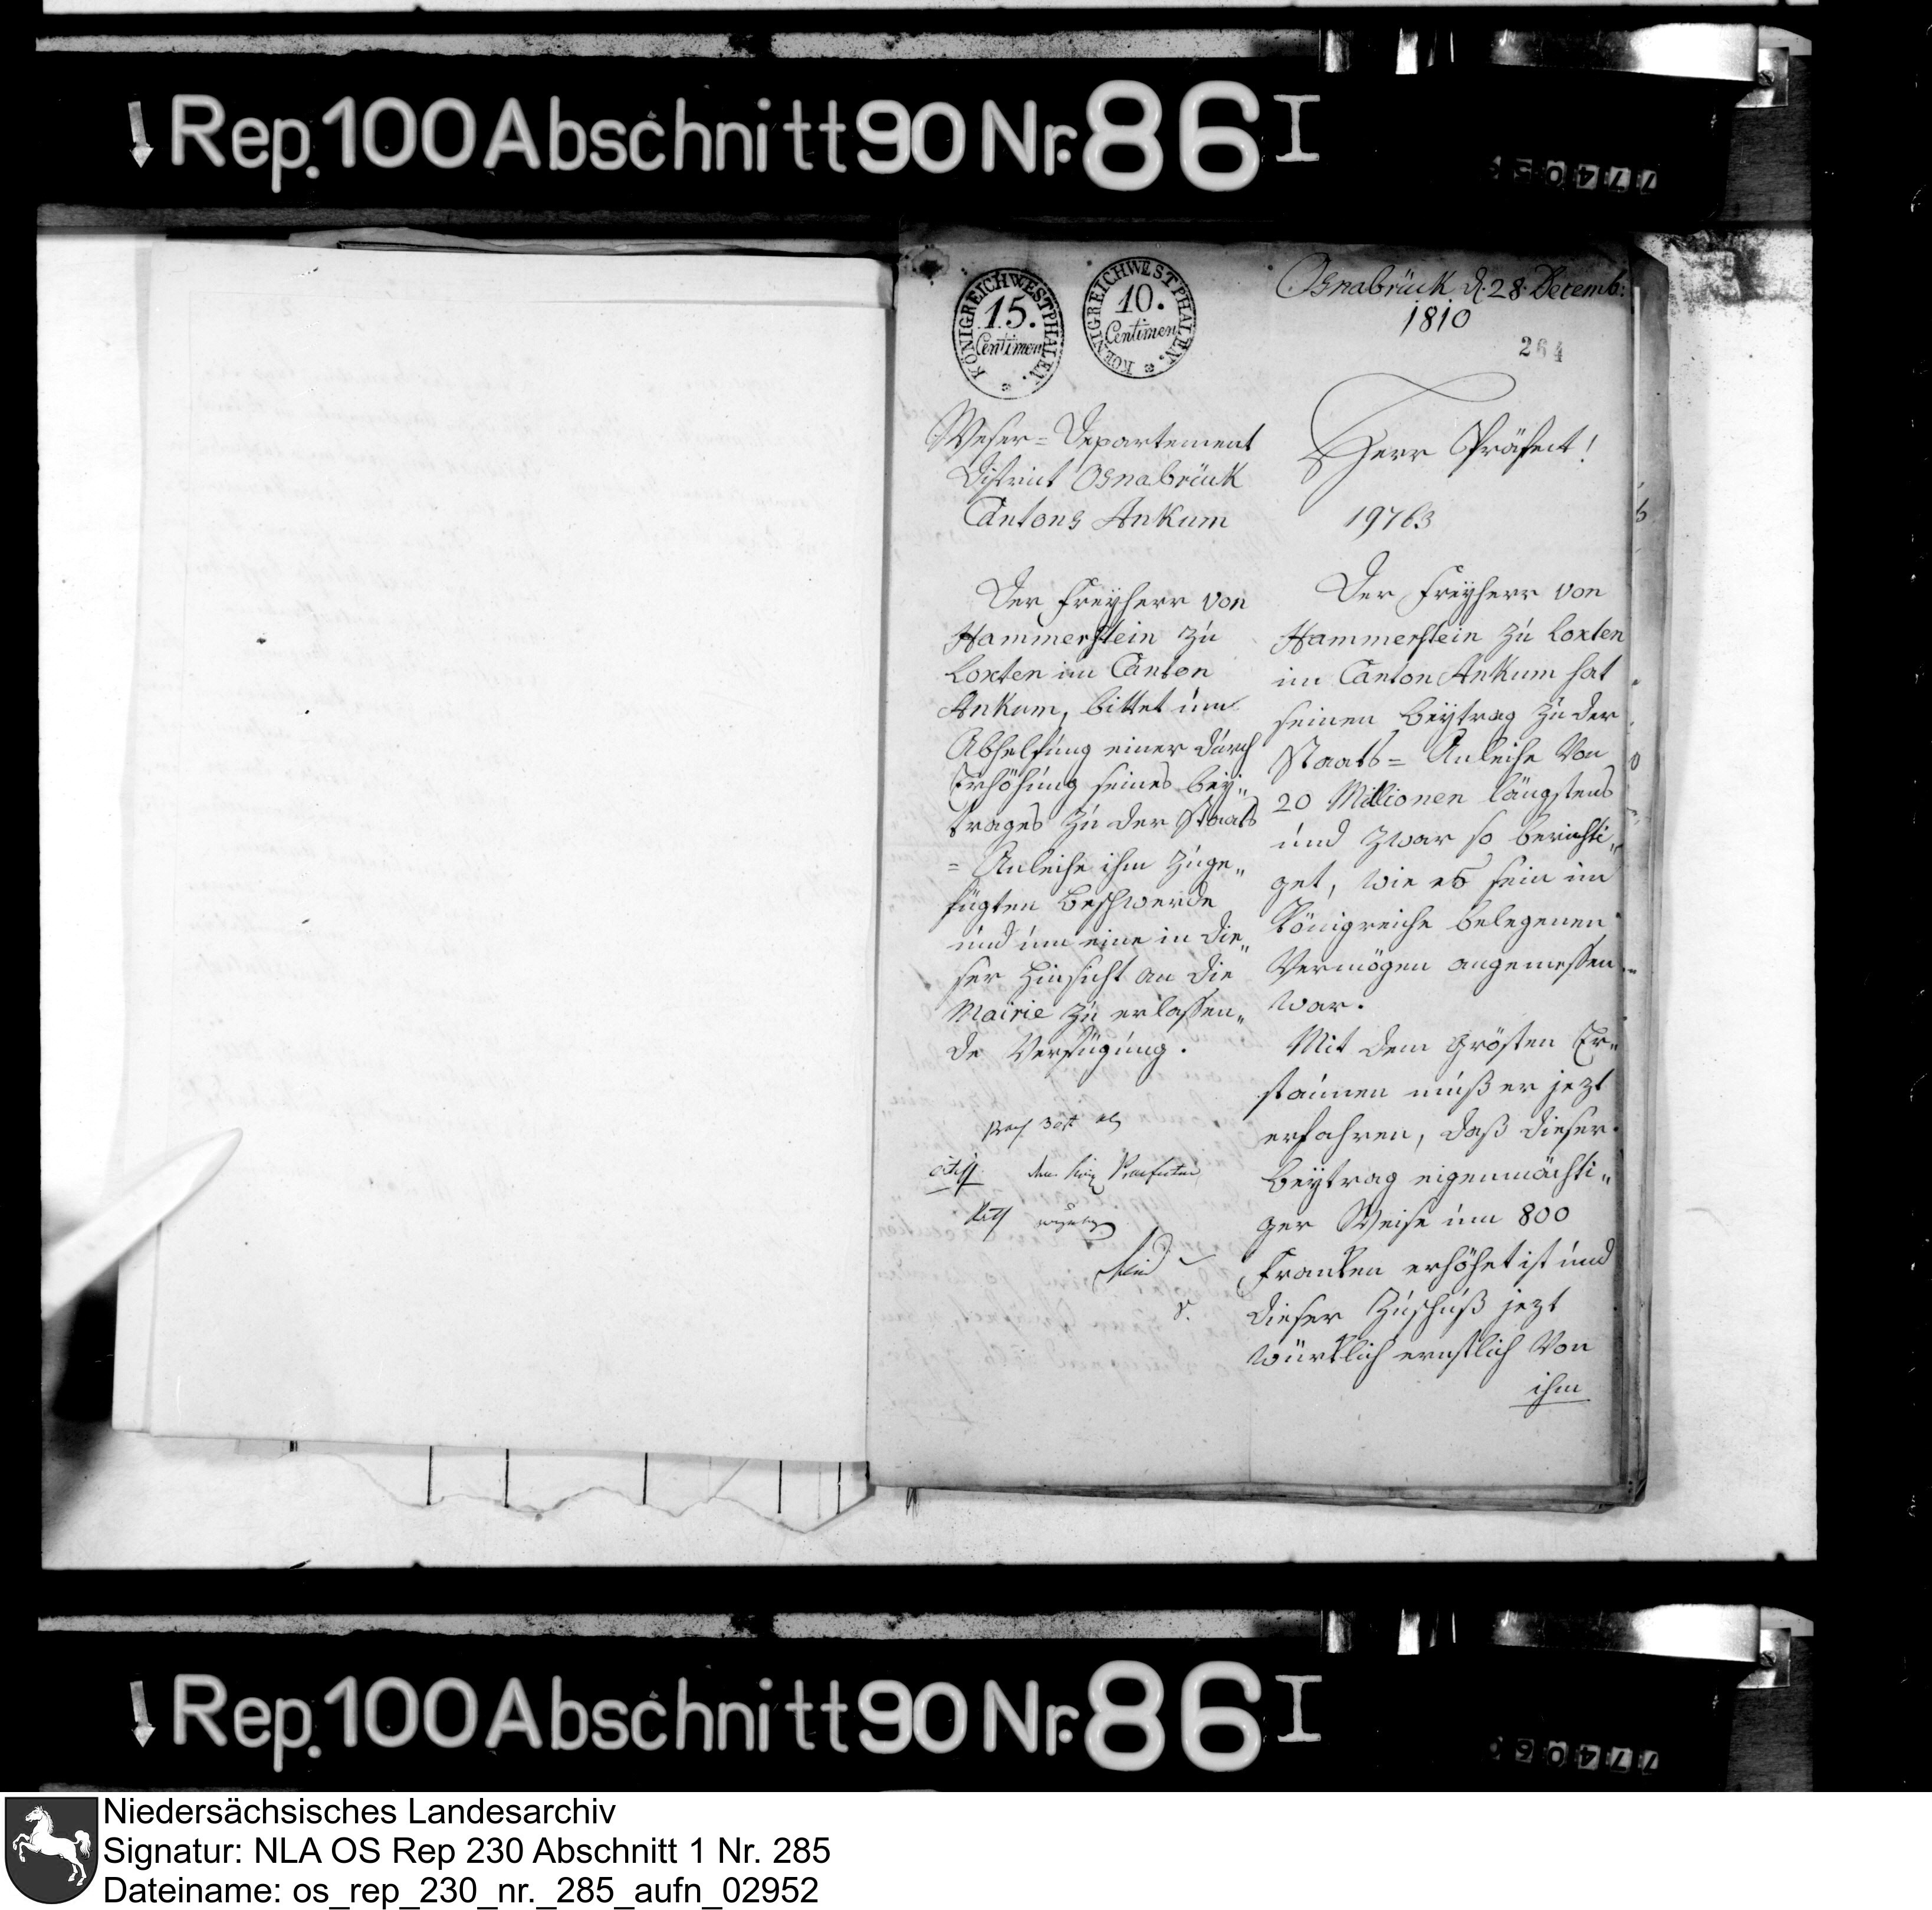 Rep.100 Abschnitt 90 Nr. 86 I
KÖNIGREICH WESTPHALEN.
15.
Centimen
KOENIGREICH WESTPHALEN.
10.
Centimen
Osnabrück d. 28. Decemb:
1810
264
Weser=Departement
District Osnabrück
Cantons Ankum
Der Freyherr von
Hammerstein zu
Loxten im Canton
Ankum, bittet um
Abhelfung einer durch
Erhöhung seines bey„
trages zu der Staats
=Anleihe ihm zuge„
fügten Beschwerde
und um eine in die„
ser Hinsicht an die
Mairie zu erlassen„
de Verfügung.
Herr Präfect!
19763
Der Freyherr von
Hammerstein zu Loxten
im Canton Ankum hat
seinen Beytrag zu der
Staats=Anleihe von
20 Millionen längstens
und zwar so berichti„
get, wie es sein im
Königreiche belegenen
Vermögen angemessen
war.
Mit dem grösten Er„
staunen muß er jezt
erfahren, daß dieser
Beytrag eigenmächti„
ger Weise um 800
Franken erhöhet ist und
dieser Zuschuß jezt
würklich ernstlich von
ihm
Rep.100 Abschnitt 90 Nr. 86 I
Niedersächsisches Landesarchiv
Signatur: NLA OS Rep 230 Abschnitt 1 Nr. 285
Dateiname: os_rep_230_nr._285_aufn_02952